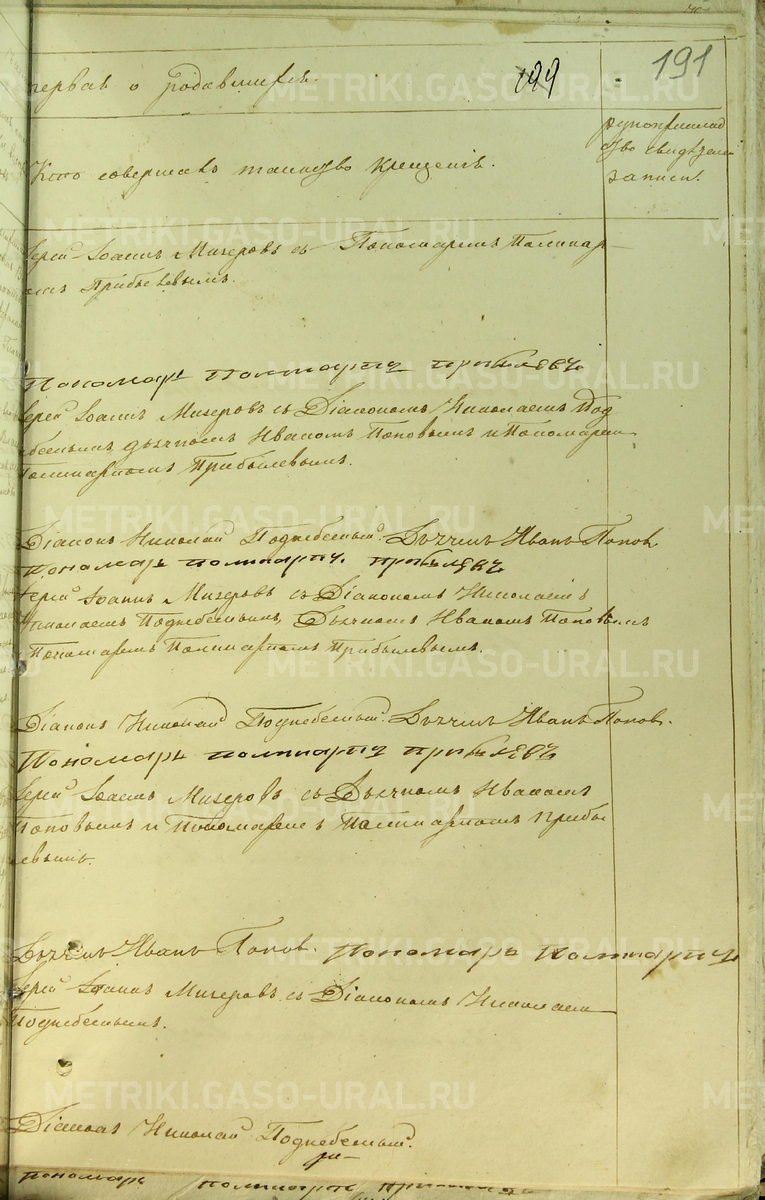 первая о родившихся. 199 191
Кто совершалъ таинство крещенiя.
рукоприклад
ство свидѣтелей
записи.
Iерей Iоаннъ Мизеровъ съ Пономаремъ Поликар-
помъ Прибылевымъ.
Пономарь Поликарпъ Прибылевъ
Iерей Iоаннъ Мизеровъ съ Дiакономъ Николаемъ Под
небеснымъ дьячкомъ Иваномъ Поповымъ и Пономаремъ
Поликарпомъ Прибылевымъ.
Дiаконъ Николай Поднебесный. Дьячекъ Иванъ Попов
Пономарь Поликарпъ Прибылевъ
Iерей Iоаннъ Мизеровъ съ Дiакономъ Николаемъ
Николаемъ Поднебеснымъ, Дьячкомъ Иваномъ Поповымъ
Пономаремъ Поликарпомъ Прибылевымъ.
Дiаконъ Николай Поднебесный. Дьячекъ Иванъ Попов.
Пономарь Поликарпъ Прибылевъ
Iерей Iоаннъ Мизеровъ съ Дьячкомъ Иваномъ
Поповымъ и Пономаремъ Поликарпомъ Прибы
левымъ.
Дьячекъ Иванъ Попов. Пономарь Поликарпъ
Iерей Iоаннъ Мизеровъ съ Дiакономъ Николаем
Поднебеснымъ.
Дiаконъ Николай Поднебесный.
Пономарь Поликарпъ
METRIKI.GASO-URAL.RU